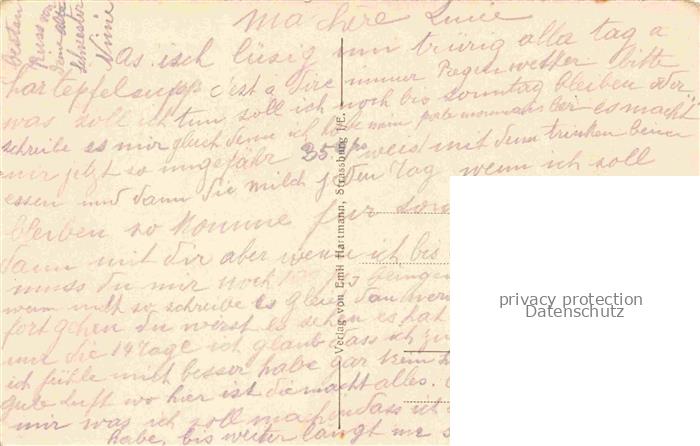 Ma chère Lucie
As isch lüsig un trürig alla tag a
hartepfelsupp c'est à dire immer Regenwetter bitte
was soll ich tun soll ich noch bis sonntag bleiben oder
schreibe es mir gleich denn ich habe mein porte monnaie leer es macht
mir jetzt so ungefähr 35 frs weist mit dem trinken beim
essen und dann die milch jeden Tag wenn ich soll
bleiben so komme für son
dann mit dir aber wenn ich bis
muss du mir noch bringen
wenn nicht so schreibe es gleich dan
fort gehen du wirst es sehen es hat
nur die 14 Tage ich glaub dass ich zu
ich fühle mich besser habe gar kein
gute luft wo hier ist die macht alles.
mir was ich soll machen dass ich
habe, bis weiter langt me s
besten
Gruss von
deine
Schwester
Nini
Verlag von Emil Hartmann, Strassburg i/E.
privacy protection
Datenschutz